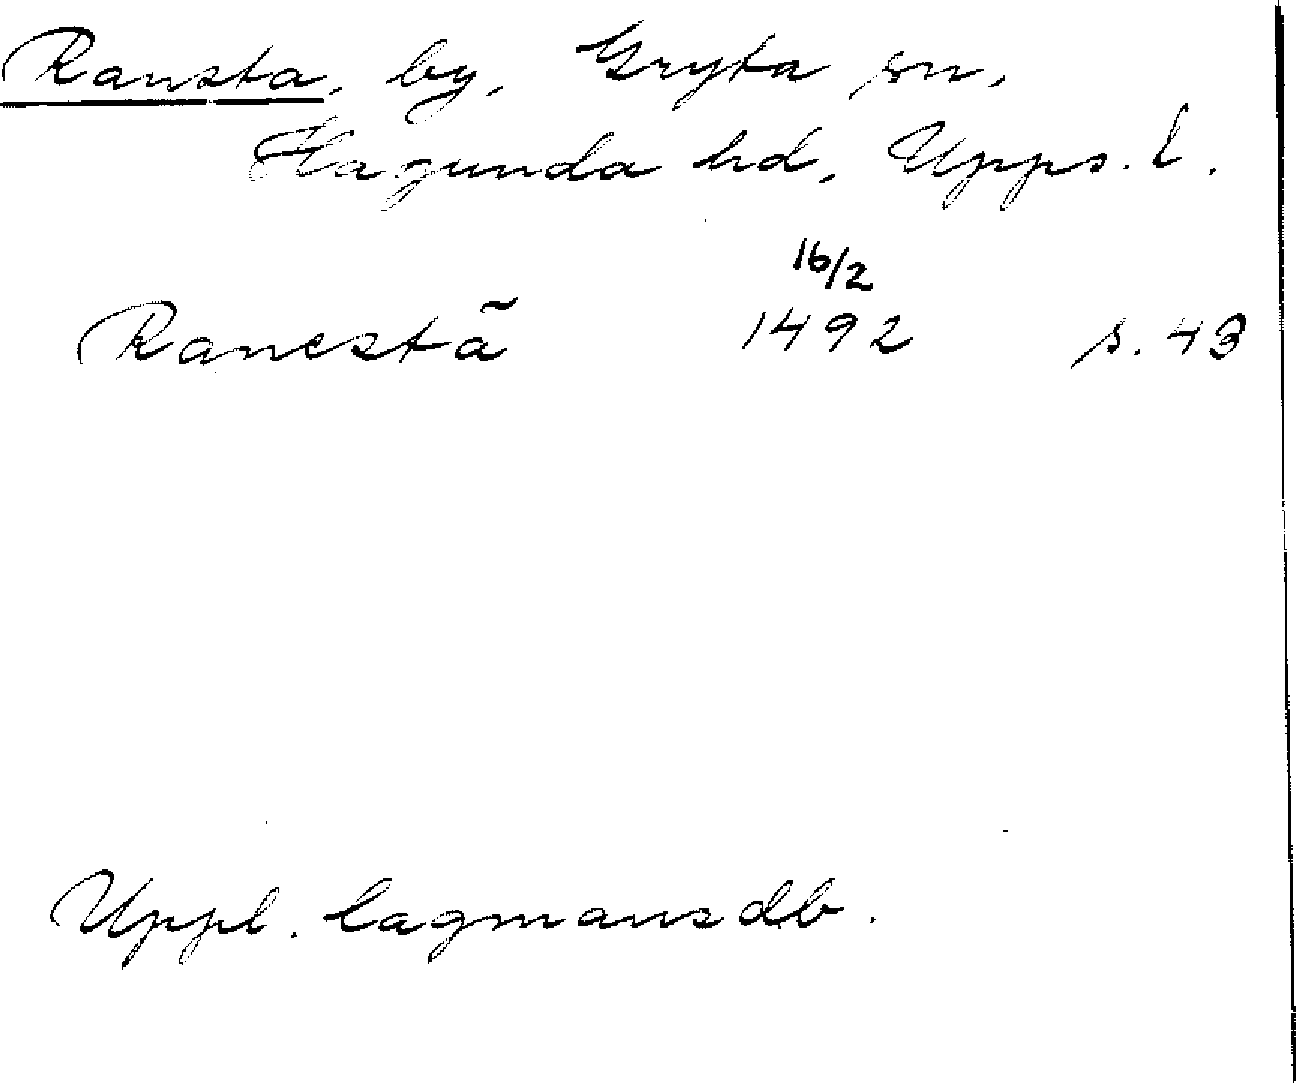 Ransta, by, Gryta sn,
Hagunda hd, Upps. l.
16/2
Ranestã 1492 s. 43
Uppl. lagmansdb.